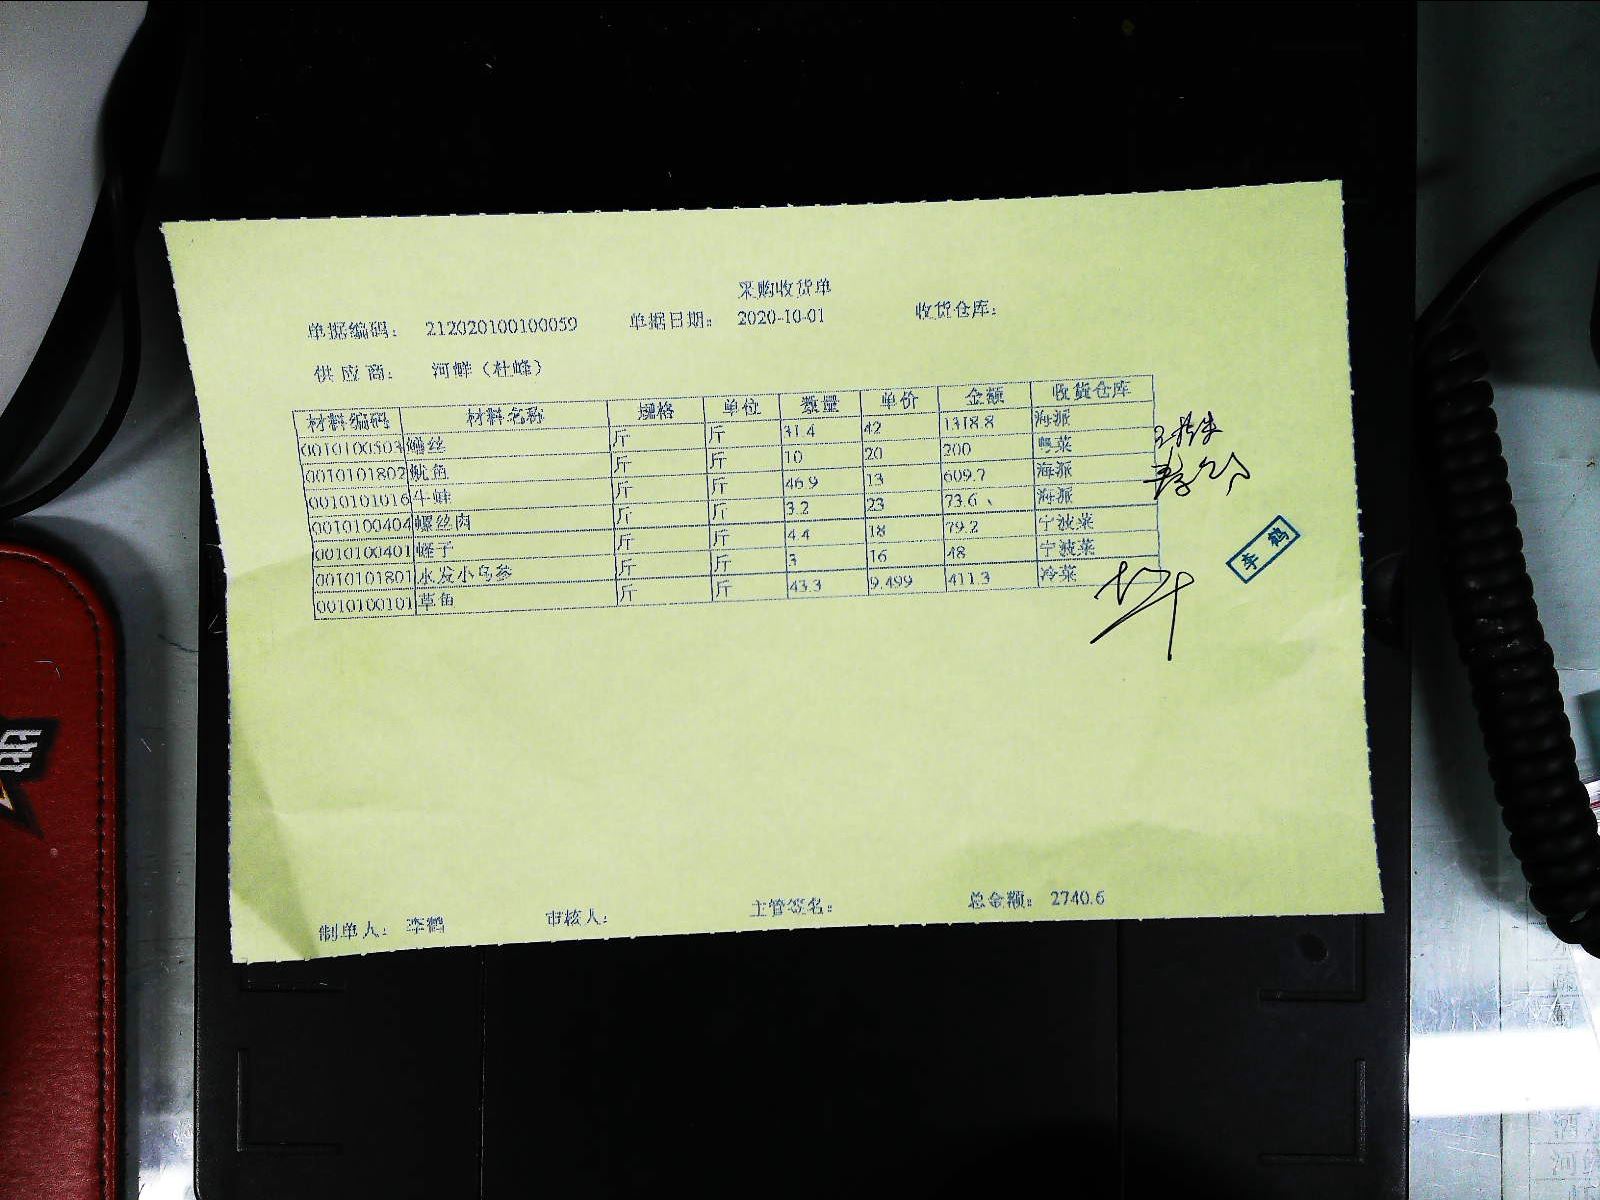 采购收货单
单据编码： 212020100100059 单据日期： 2020-10-01 收货仓库：
供应商： 河鲜（杜峰）
材料编码 材料名称 规格 单位 数量 单价 金额 收货仓库
0010100503 鳝丝 斤 斤 31.4 42 1318.8 海派
0010101802 鱿鱼 斤 斤 10 20 200 粤菜
0010101016 牛蛙 斤 斤 46.9 13 609.7 海派
0010100404 螺丝肉 斤 斤 3.2 23 73.6 海派
0010100401 蛏子 斤 斤 4.4 18 79.2 宁波菜
0010101801 水发小乌参 斤 斤 3 16 48 宁波菜
0010100101 草鱼 斤 斤 43.3 9.499 411.3 冷菜
李鹤
制单人： 李鹤 审核人： 主管签名： 总金额： 2740.6